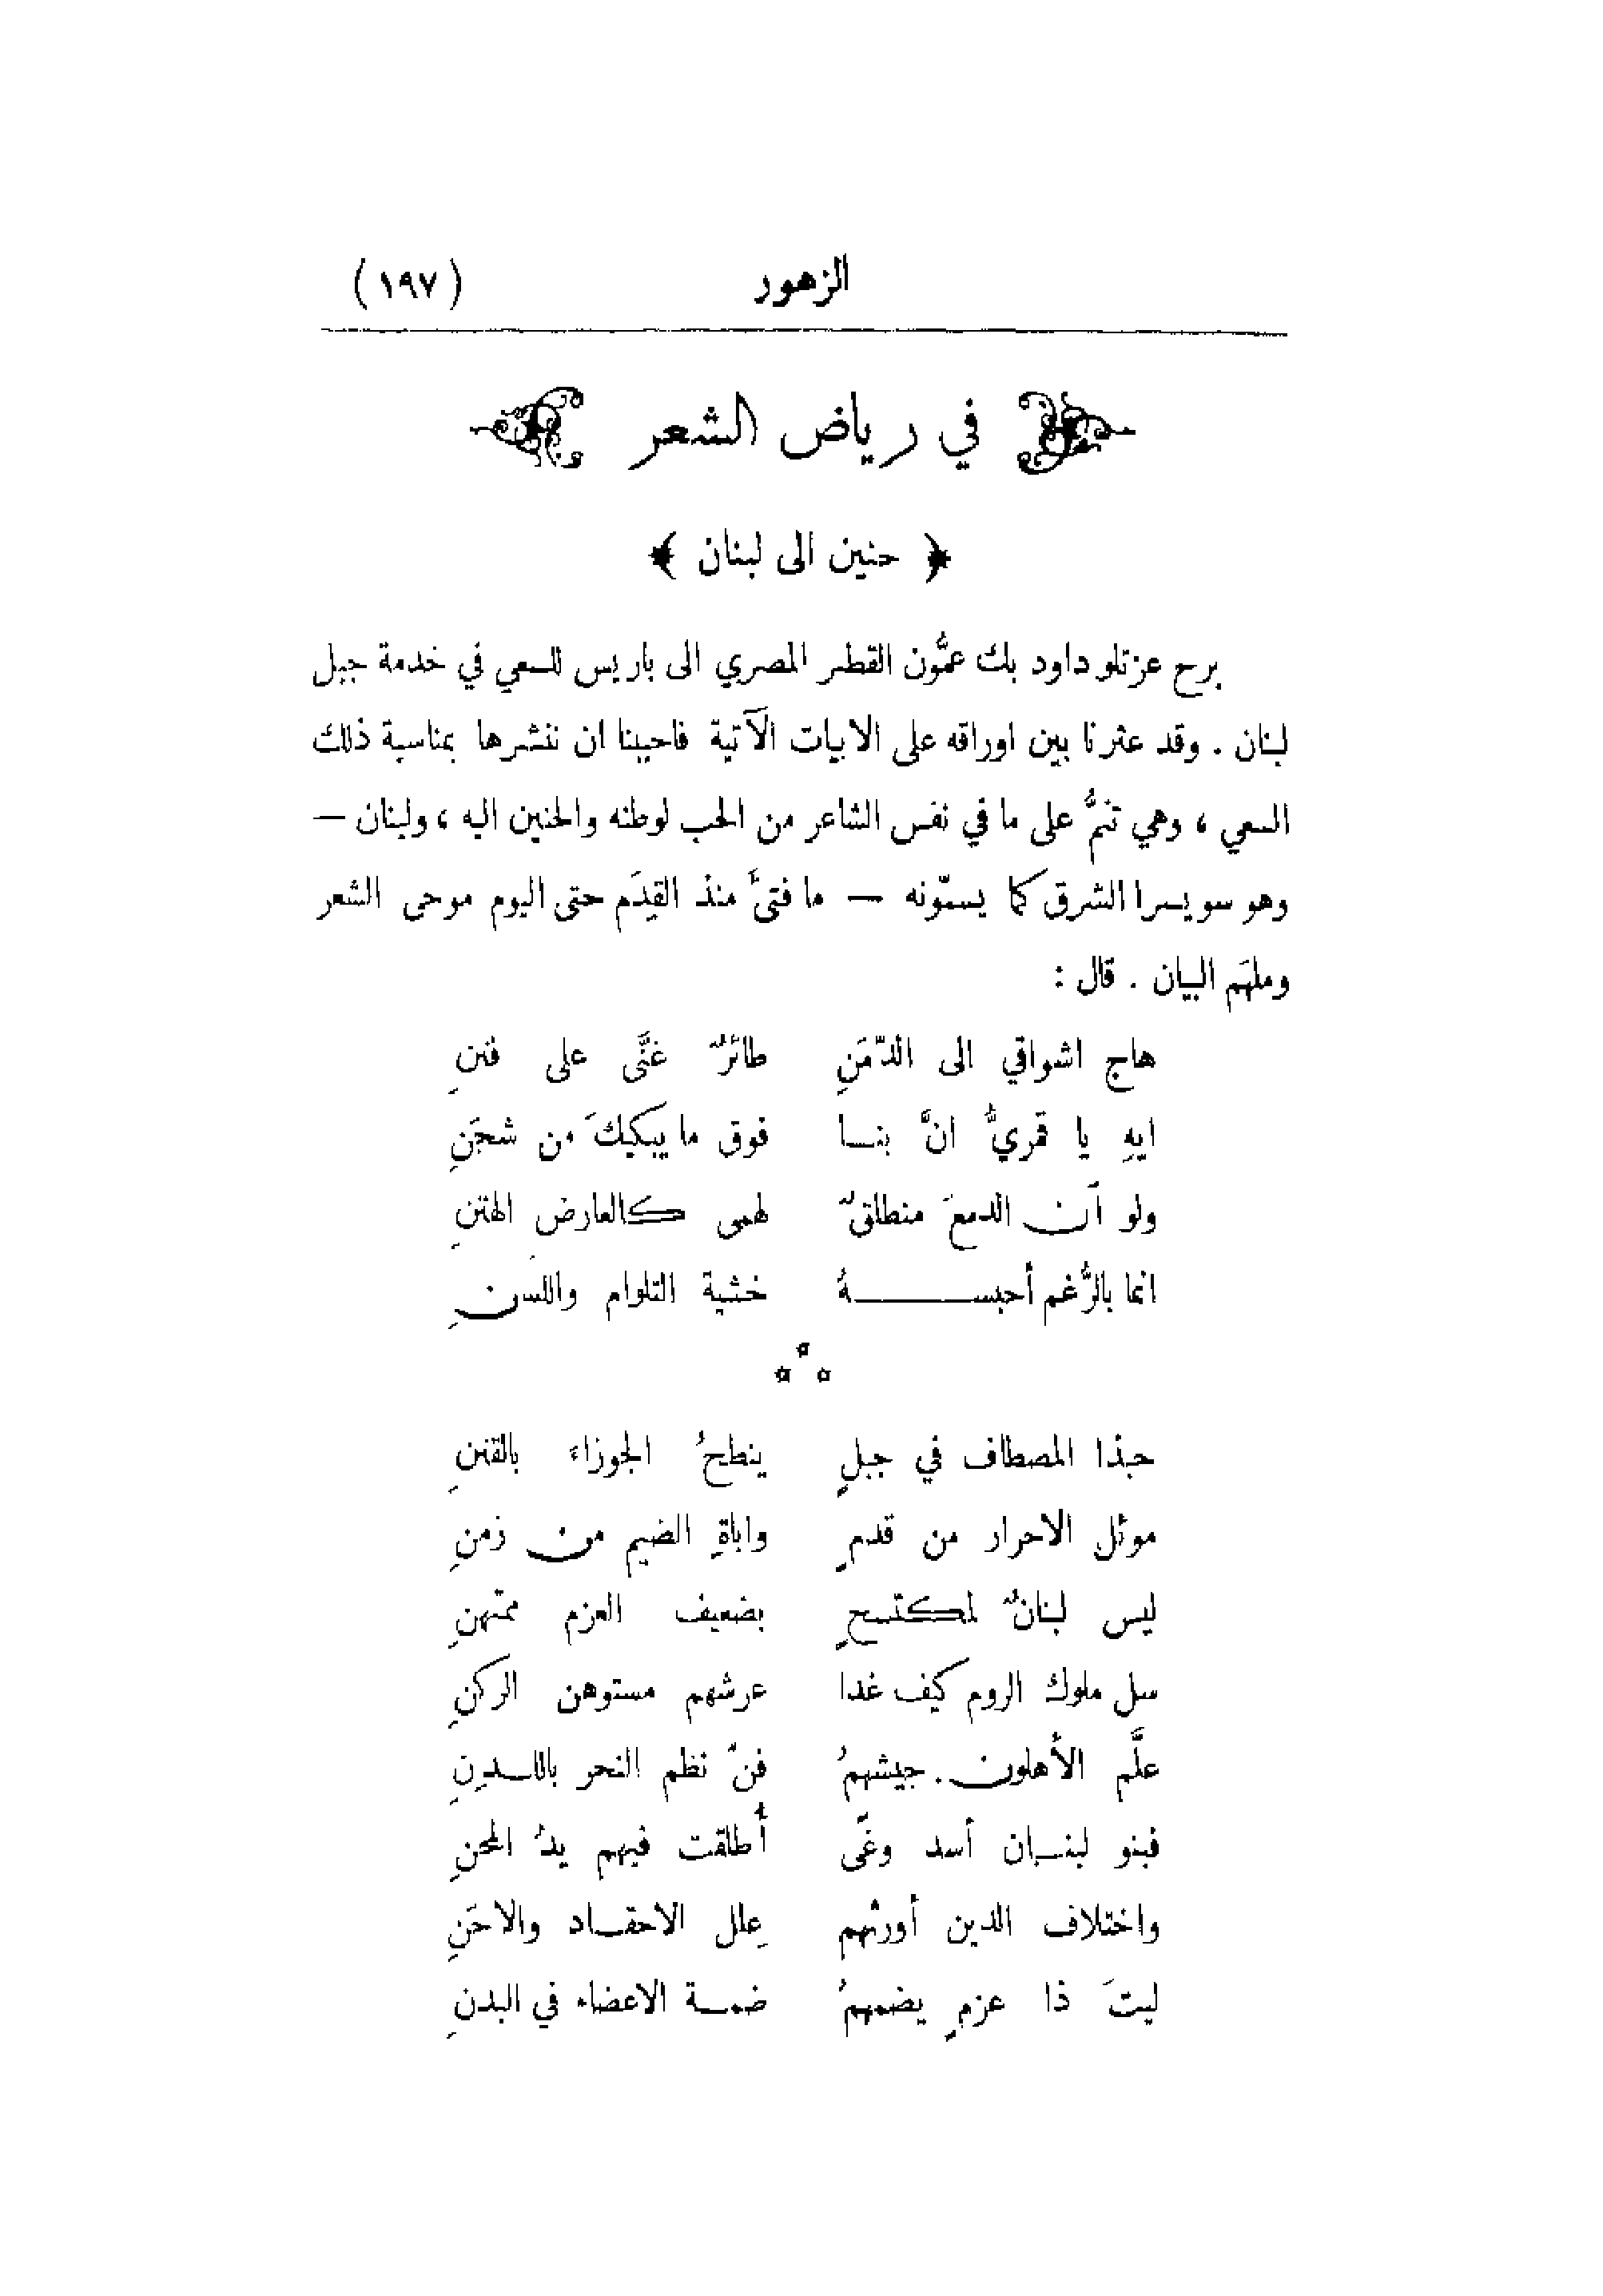 الزهور (١٩٧)
في رياض الشعر
﴿ حنين الى لبنان ﴾
برح عزتلو داود بك عمُّون القطر المصري الى باريس للسعي في خدمة جبل
لبنان . وقد عثرنا بين اوراقه على الابيات الآتية فاحببنا ان ننشرها بمناسبة ذلك
السعي ، وهي تنمُّ على ما في نفس الشاعر من الحب لوطنه والحنين اليه ، ولبنان —
وهو سويسرا الشرق كما يسمّونه — ما فتئَ منذ القِدَم حتى اليوم موحى الشعر
وملهَم البيان . قال :
هاج اشواقي الى الدّمَنِ طائرٌ غنَّى على فننِ
ايهِ يا قمريُّ انَّ بنا فوق ما يبكيكَ من شجَنِ
ولو أن الدمعَ منطلقٌ لهمى كالعارض الهتنِ
انما بالرُّغم أحبسهُ خشية التلوام واللسَنِ
* * *
حبذا المصطاف في جبلٍ ينطحُ الجوزاءَ بالقننِ
موئل الاحرار من قدمٍ واباةِ الضيم من زمنِ
ليس لبنانٌ لمكتسحٍ بضعيف العزم ممتهنِ
سل ملوك الروم كيف غدا عرشهم مستوهن الركنِ
علَّم الأهلون . جيشهمُ فنّ نظم النحر باللدِنِ
فبنو لبنان أسد وغًى أُطلقت فيهم يدُ المحنِ
واختلاف الدين أورثهم عِلل الاحقاد والاحَنِ
ليتَ ذا عزمٍ يضمهمُ ضمة الاعضاء في البدنِ